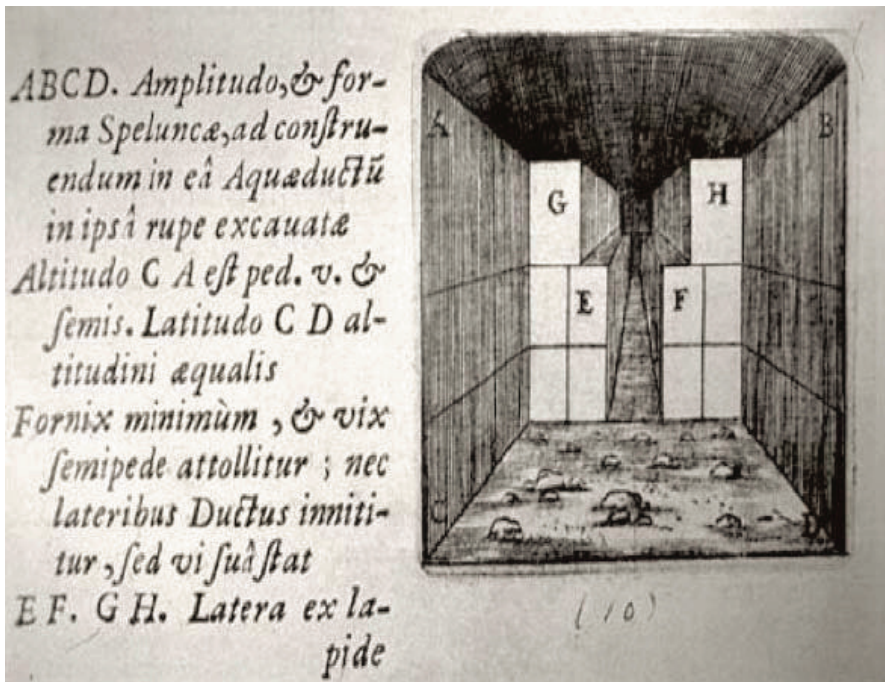 ABCD. Amplitudo, & for-
ma Speluncæ, ad conſtru-
endum in eâ Aquæductũ
in ipsâ rupe excauatæ
Altitudo C A eſt ped. v. &
ſemis. Latitudo C D al-
titudini æqualis
Fornix minimùm , & vix
ſemipede attollitur ; nec
lateribus Ductus inniti-
tur , ſed vi ſuâ ſtat
E F. G H. Latera ex la-
pide
A B
G H
E F
C D
(10)